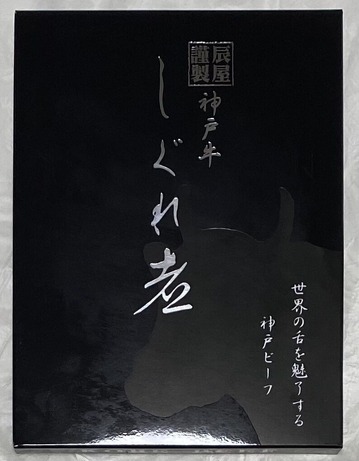 辰屋
謹製
神戸牛
しぐれ煮
世界の舌を魅了する
神戸ビーフ